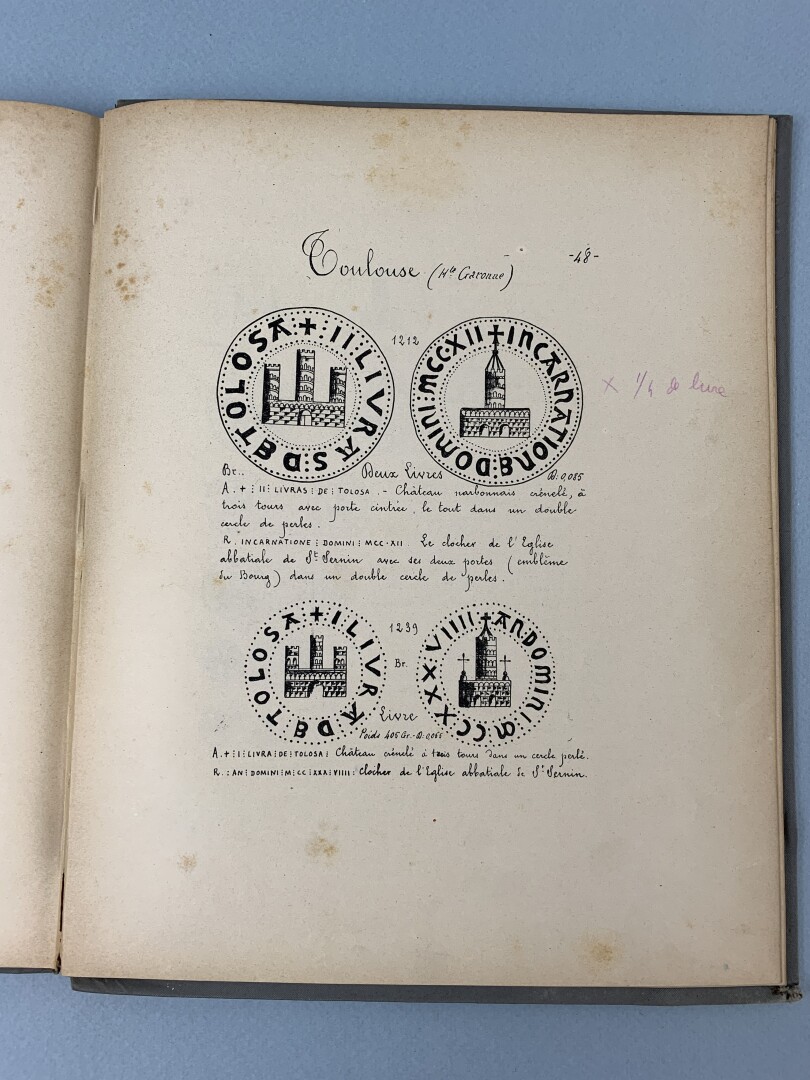 Toulouse (Hte Garonne) -48-
+ ⁝ II ⁝ LIVRAS ⁝ DE ⁝ TOLOSA ⁝
1212
+ INCARNATIONE ⁝ DOMINI ⁝ MCC·XII
× 1/4 de livre
Br.. Deux Livres D: 0,085
A. + ⁝ II ⁝ LIVRAS ⁝ DE ⁝ TOLOSA . - Château narbonnais crénelé, à
trois tours avec porte cintrée, le tout dans un double
cercle de perles.
R. INCARNATIONE ⁝ DOMINI ⁝ MCC·XII. Le clocher de l'Eglise
abbatiale de St Sernin avec ses deux portes (emblême
du Bourg) dans un double cercle de perles.
+ ⁝ I ⁝ LIVRA ⁝ DE ⁝ TOLOSA ⁝
1239
⁝ AN ⁝ DOMINI ⁝ M ⁝ CC ⁝ XXX ⁝ VIIII ⁝
Br.
Livre
Poids 405 Gr.-D: 0,066
A. + ⁝ I ⁝ LIVRA ⁝ DE ⁝ TOLOSA ⁝ Château crénelé à trois tours dans un cercle perlé.
R. ⁝ AN ⁝ DOMINI ⁝ M ⁝ CC ⁝ XXX ⁝ VIIII ⁝ Clocher de l'Eglise abbatiale de St Sernin.